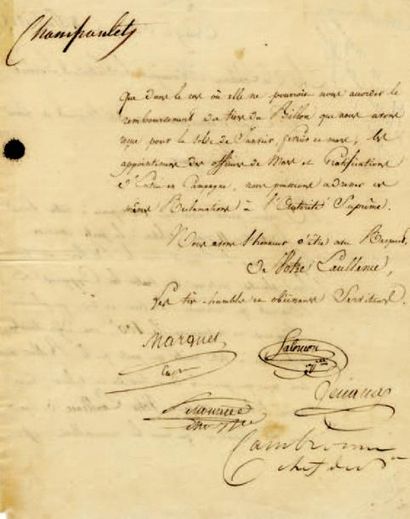 Champault
que dans le cas où elle ne pourroit nous accorder le
remboursement du tiers du Billon que nous avons
reçu pour la Solde de Janvier, février et mars, les
appointemens des officiers de Mars et Gratifications
d'Entrée en Campagne, nous puissions adresser ces
mêmes Réclamations à l'Autorité Suprême.
Nous avons l'honneur d'être avec Respect,
De Votre Excellence,
Les très humbles et obéissans Serviteurs.
Marquet
Salomon
Cambronne
chef de